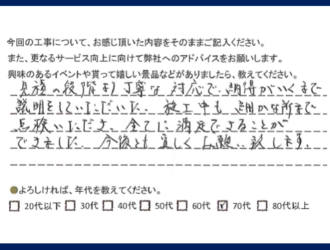 今回の工事について、お感じ頂いた内容をそのままご記入ください。
また、更なるサービス向上に向けて弊社へのアドバイスをお願いします。
興味のあるイベントや貰って嬉しい景品などがありましたら、教えてください。
見積の段階より丁寧な対応で、納得がいくまで
説明をしていただいた。施工中も細かな所まで
点検いただき、全てに満足できることが
できました。今後とも宜しくお願い致します。
●よろしければ、年代を教えてください。
□20代以下 □30代 □40代 □50代 □60代 ☑70代 □80代以上